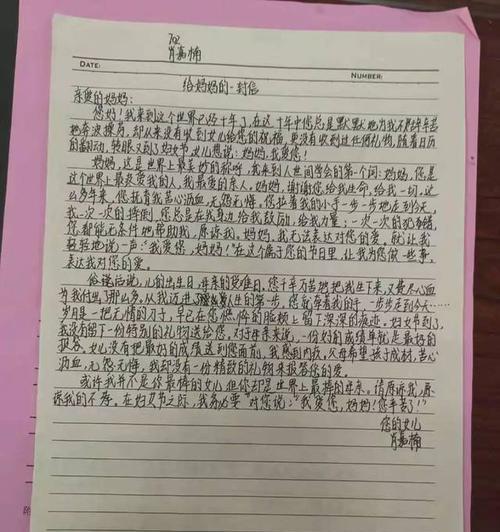 702
肖嘉楠
DATE:
NUMBER:
给妈妈的一封信
亲爱的妈妈:
您好!我来到这个世界已经十年了,在这十年中您总是默默地为我不辞辛苦
地奔波操劳,却从来没有收到女儿给您的祝福,更没有收到过任何礼物,随着日历
的翻动,转眼又到了妇女节,女儿想说:妈妈,我爱您!
妈妈,这是世界上最美妙的称呼,我来到人世间学会的第一个词:妈妈,您是
这个世界上最疼爱我的人,我最爱的亲人。妈妈,谢谢您给我生命,给我一切,这
么多年来,您抚育我苦心沥血,无怨无悔。您拉着我的小手一步一步地走到今天,
我一次一次的摔倒,您总是在我身边给我鼓励,给我力量;一次一次的犯错,
您都能无条件地帮助我,原谅我。妈妈,我无法表达对您的爱。就让我
轻轻地说一声:"我爱您,妈妈!"在这个属于您的节日里,让我为您做一些事,
表达我对您的爱。
俗话说,儿的出生日,母亲的受难日,您千辛万苦地把我生下来,又费尽心血
为我付出了那么多,从我迈进人生的第一步,您就牵着我的手,一步步走到今天……
岁月是一把无情的刀子,早已在您的脸颊上留下深深的痕迹。妇女节到了,
我没有留一份特别的礼物送给您。对于母亲来说,一份好的成绩单就是最好的
报答。女儿没有把最好的成绩送到您面前,我感到内疚,父母希望孩子成材,苦心
沥血,无怨无悔,我却没有一份精致的礼物来报答您的爱。
或许我并不是你最棒的女儿但您却是世界上最棒的母亲。请原谅我,原
谅我的不孝。在妇女节之际,我务必要"对您说:"我爱您,妈妈!您辛苦了!"
您的女儿
肖嘉楠